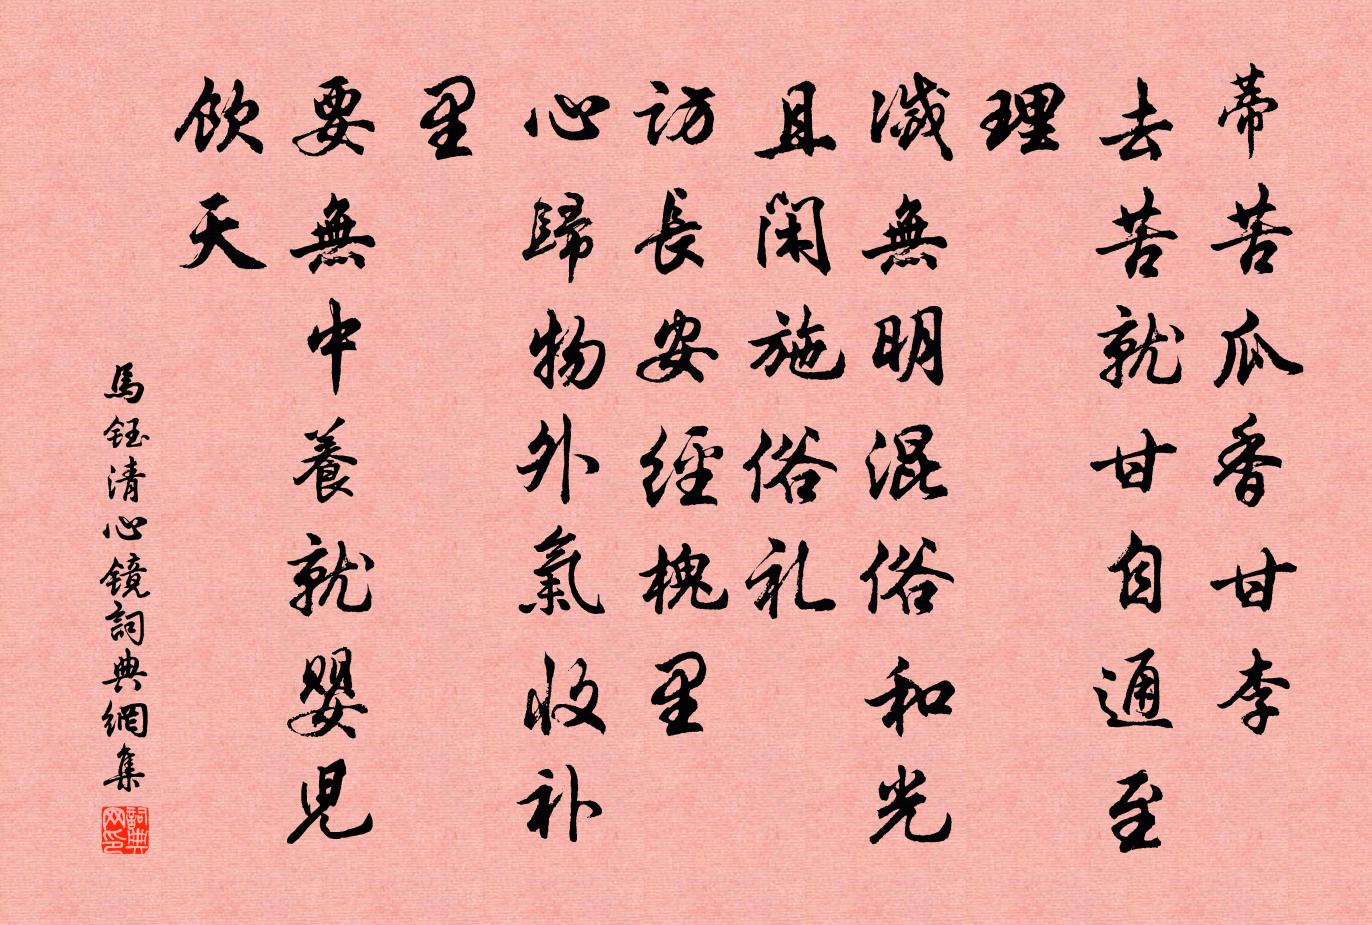 蒂苦瓜香甘李
去苦就甘自通至
理
滅無明混俗和光
且閑施俗礼
訪長安經槐里
心歸物外氣收补
里
要無中養就嬰児
飲天
馬鈺清心鏡詞典網集
詞典网印